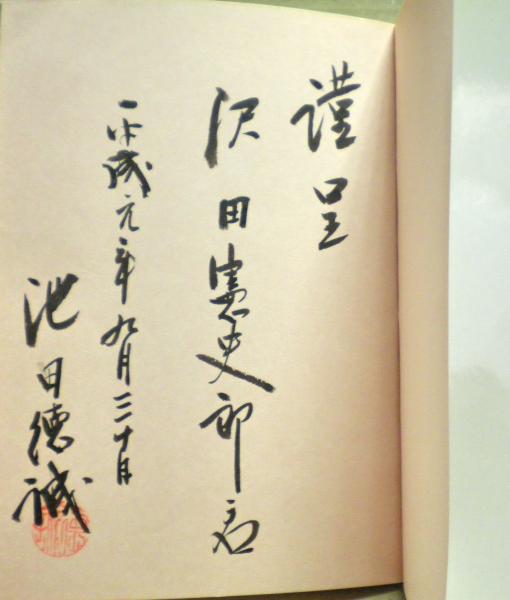 謹呈
沢田憲史郎君
平成元年九月三十日
池田徳誠